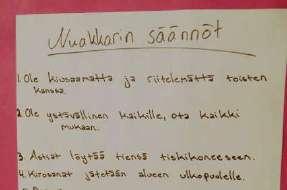 Nuakkarin säännöt
1. Ole kiusaamatta ja riitelemättä toisten
kanssa.
2. Ole ystävällinen kaikille, ota kaikki
mukaan.
3. Astiat löytää tiensä tiskikoneeseen.
4. Kirosanat jätetään alueen ulkopuolelle.